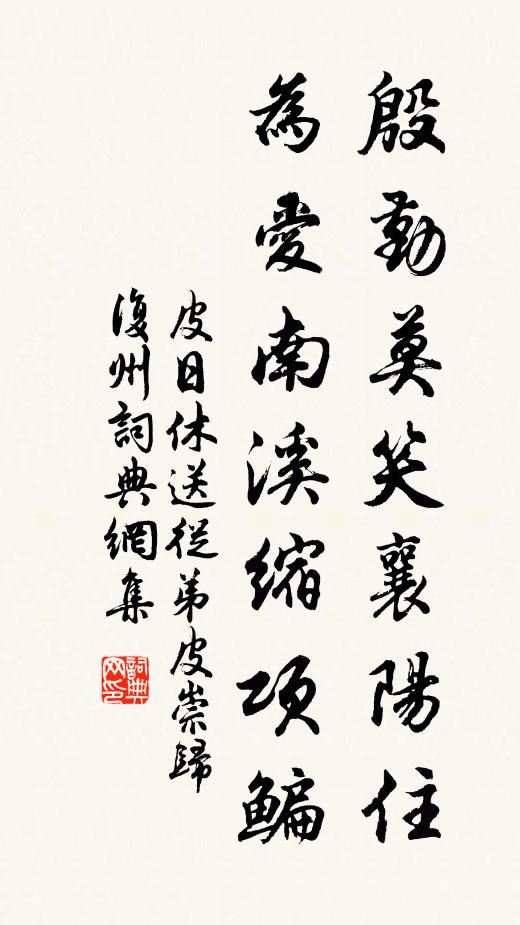 殷勤莫笑襄陽住
為愛南溪縮項鯿
皮日休送從弟皮崇歸
復州詞典網集
詞典网印